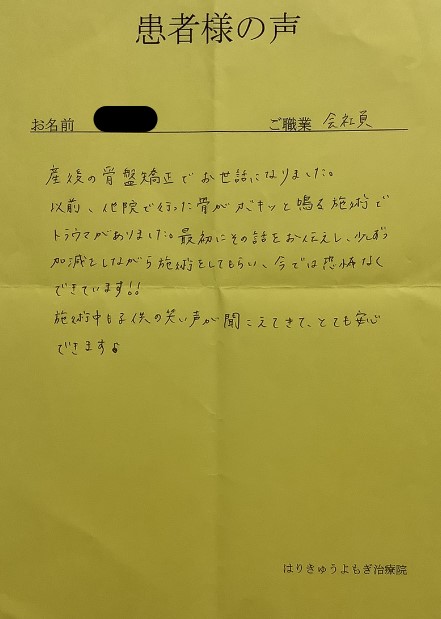 患者様の声
お名前 ご職業 会社員
産後の骨盤矯正でお世話になりました。
以前、他院で行った骨がバキッと鳴る施術で
トラウマがありました。最初にその話をお伝えし、少しずつ
加減をしながら施術をしてもらい、今では恐怖なく
できています!!
施術中も子供の笑い声が聞こえてきて、とても安心
できます♪
はりきゅうよもぎ治療院